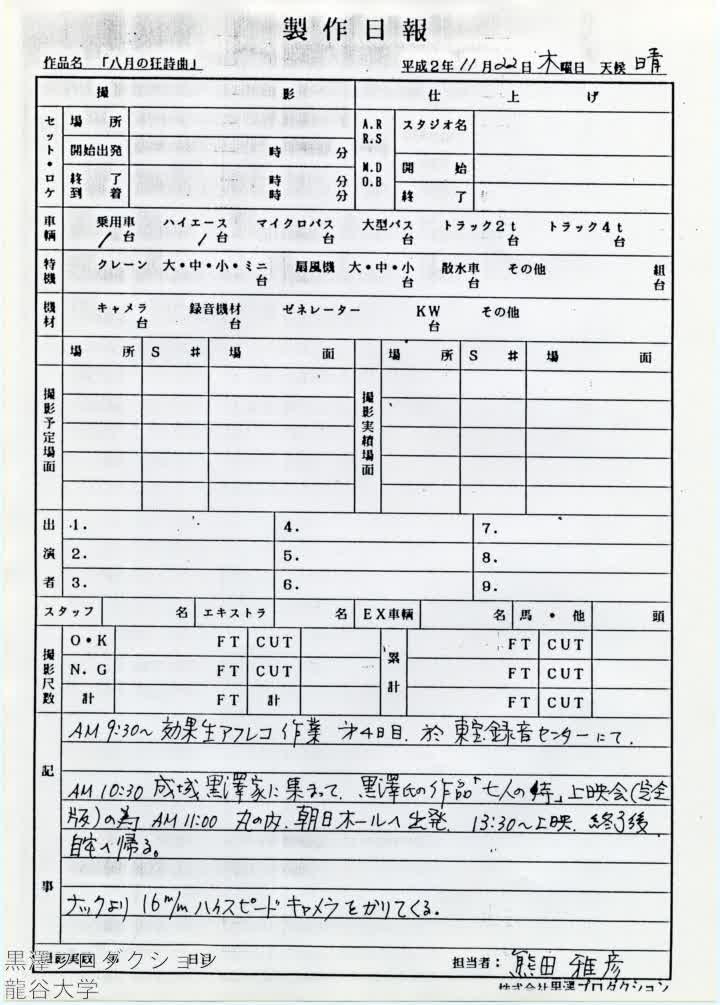 製作日報
作品名 「八月の狂詩曲」 平成2年11月22日 木曜日 天候 晴
撮影 仕上げ
セット・ロケ 場所 A.R R.S スタジオ名
開始出発 時 分 M.D O.B 開始
終了 時 分 終了
到着 時 分
車輌 乗用車 1台 ハイエース 1台 マイクロバス 台 大型バス 台 トラック2t 台 トラック4t 台
特機 クレーン 大・中・小・ミニ 台 扇風機 大・中・小 台 散水車 台 その他 組 台
機材 キャメラ 台 録音機材 台 ゼネレーター KW 台 その他
場所 S # 場面 場所 S # 場面
撮影予定場面 撮影実績場面
出演者 1. 4. 7.
2. 5. 8.
3. 6. 9.
スタッフ 名 エキストラ 名 EX車輌 名 馬・他 頭
撮影尺数 O・K FT CUT 累計 FT CUT
N.G FT CUT FT CUT
計 FT 計 FT CUT
記事
AM 9:30〜 効果生アフレコ作業 才4日目. 於 東宝録音センターにて.
AM 10:30 成城 黒澤家に集まって、黒澤氏の作品「七人の侍」上映会(完全
版)の為 AM 11:00 丸の内.朝日ホールへ出発. 13:30〜上映. 終了後
自宅へ帰る。
ナックより 16m/m ハイスピードキャメラをかりてくる。
撮影実数 日目
担当者: 熊田 雅彦
株式会社黒澤プロダクション
黒澤プロダクション
龍谷大学